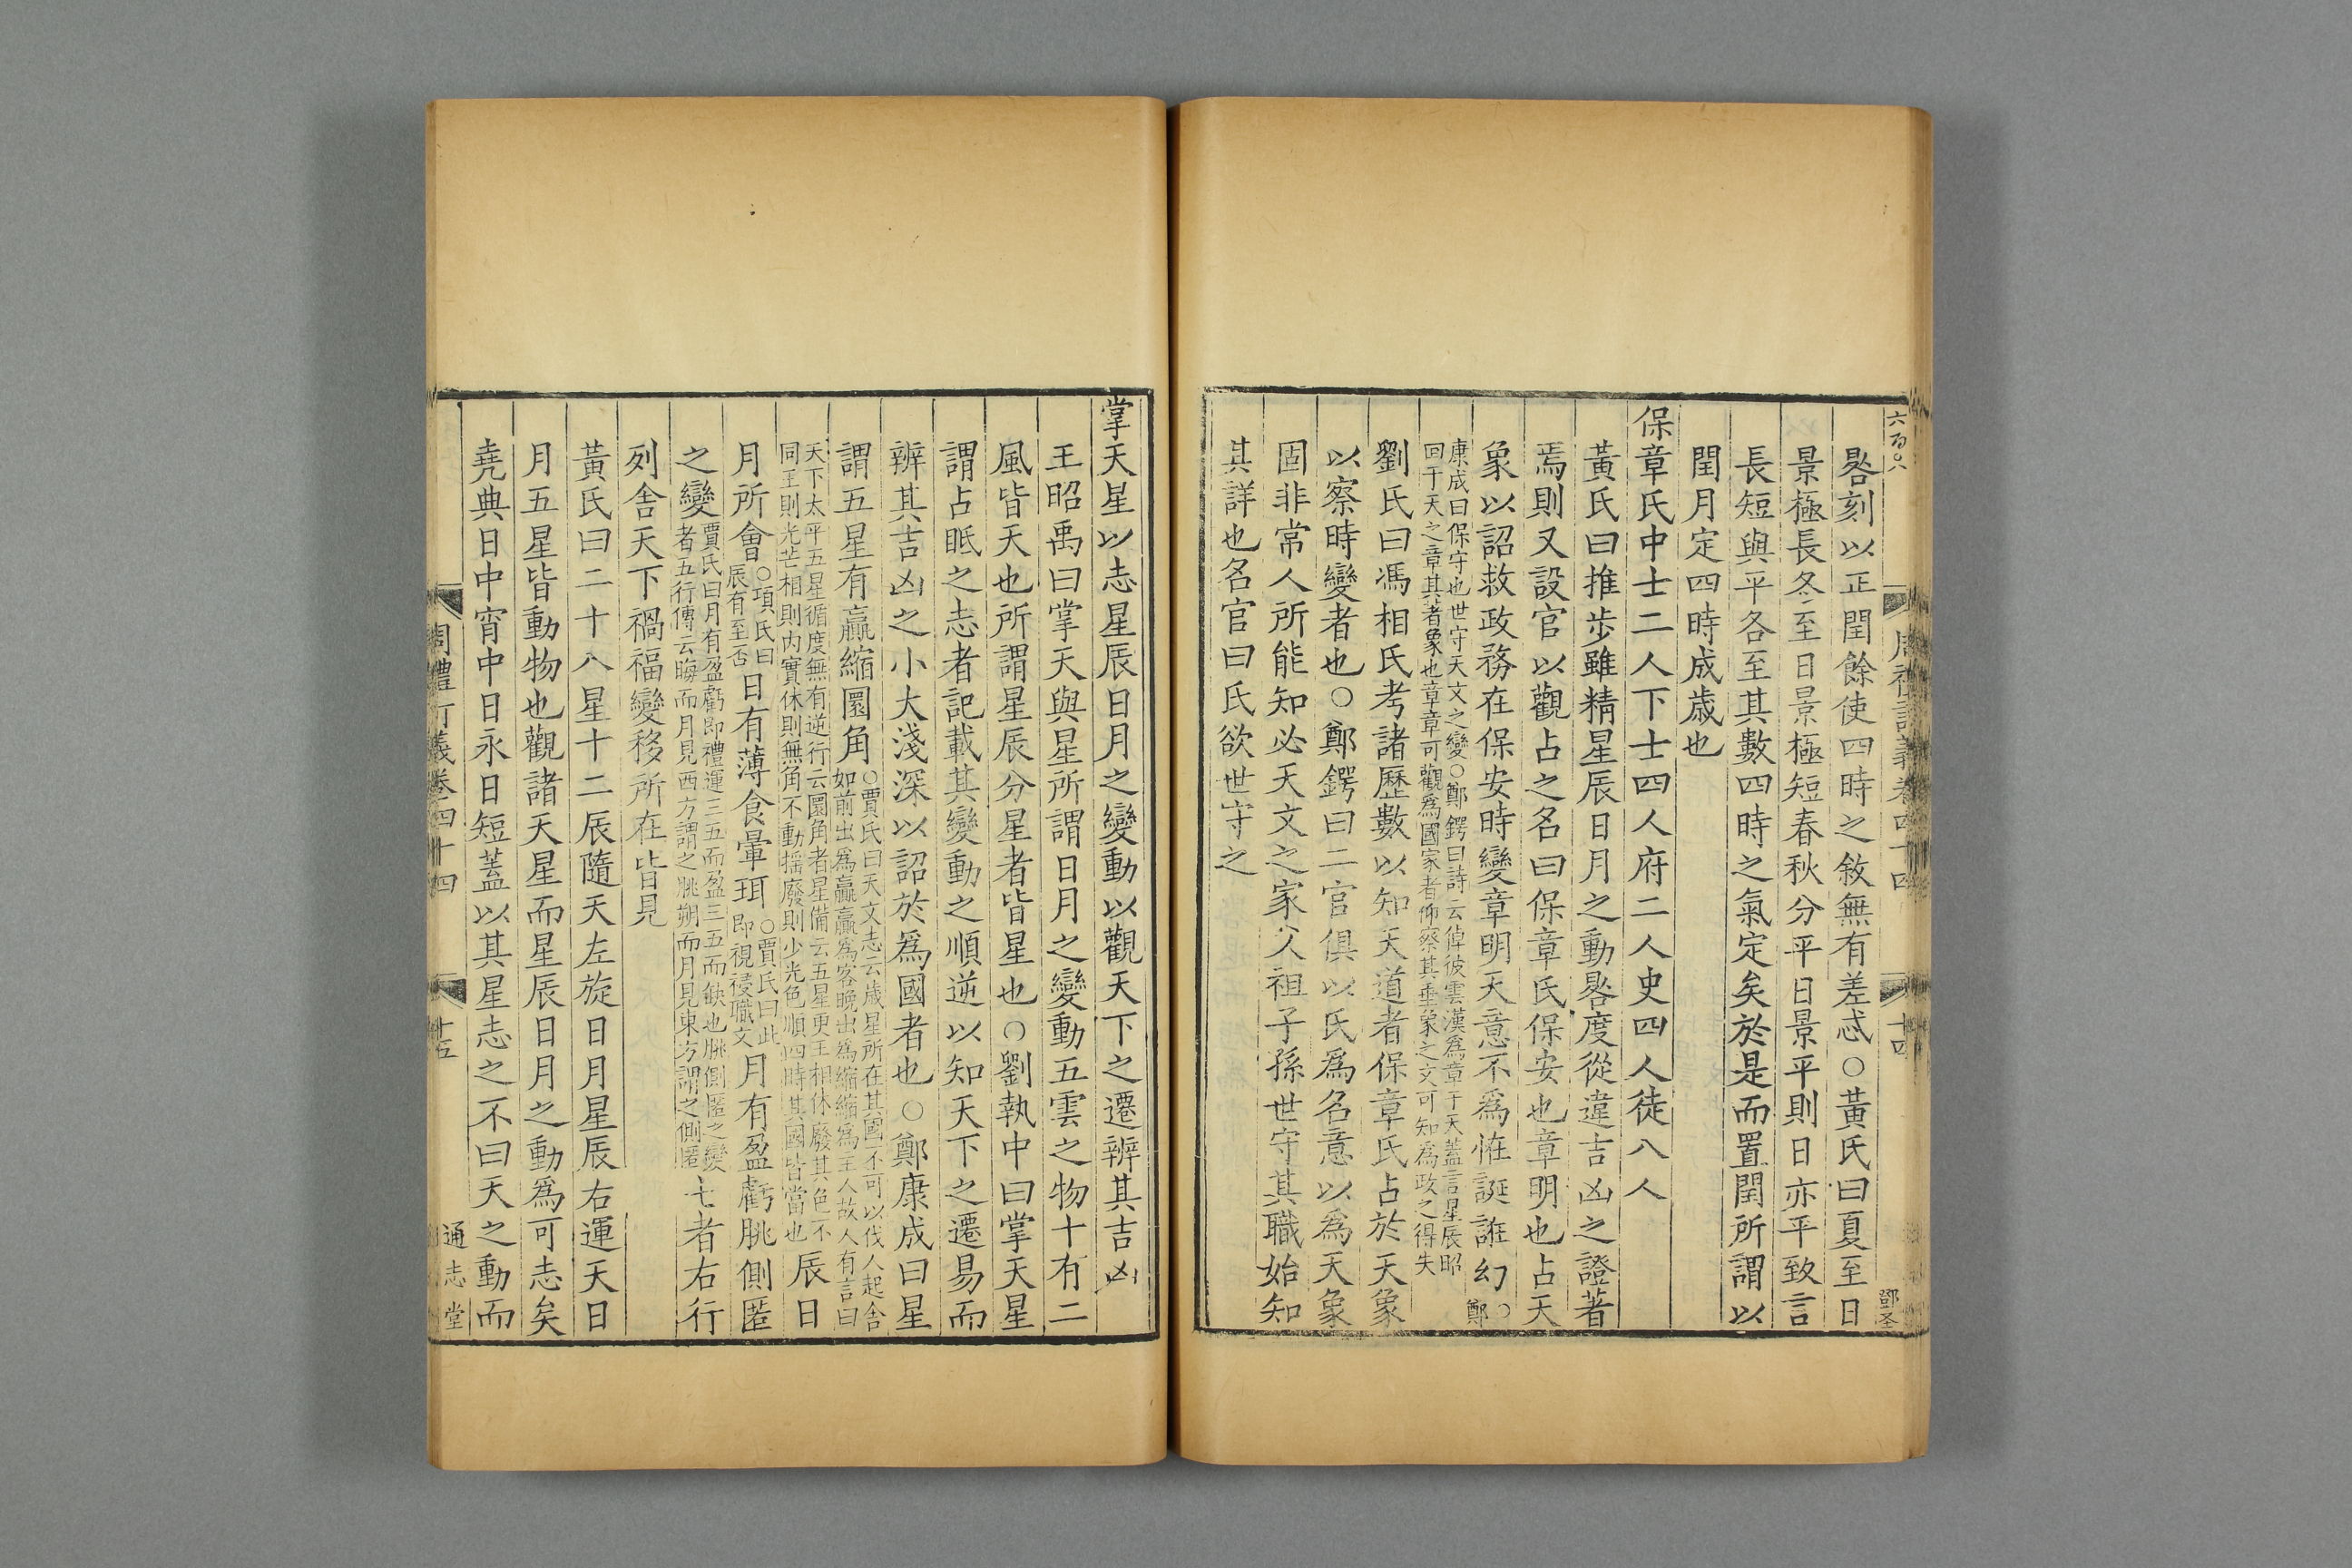 六百〇八
周禮訂義卷四十四
十四
鄧圣
晷刻以正閏餘使四時之敘無有差忒○黃氏曰夏至日
景極長冬至日景極短春秋分平日景平則日亦平致言
長短與平各至其數四時之氣定矣於是而置閏所謂以
閏月定四時成歲也
保章氏中士二人下士四人府二人史四人徒八人
黃氏曰推步雖精星辰日月之動晷度從違吉凶之證著
焉則又設官以觀占之名曰保章氏保安也章明也占天
象以詔救政務在保安時變章明天意不為恠誕誰幻○鄭
康成曰保守也世守天文之變○鄭鍔曰詩云倬彼雲漢為章于天蓋言星辰昭
回于天之章其著象也章章可觀為國家者仰察其垂象之文可知為政之得失
劉氏曰馮相氏考諸歷數以知天道者保章氏占於天象
以察時變者也○鄭鍔曰二官俱以氏為名意以為天象
固非常人所能知必天文之家父祖子孫世守其職始知
其詳也名官曰氏欲世守之
掌天星以志星辰日月之變動以觀天下之遷辨其吉凶
王昭禹曰掌天與星所謂日月之變動五雲之物十有二
風皆天也所謂星辰分星者皆星也○劉執中曰掌天星
謂占眡之志者記載其變動之順逆以知天下之遷易而
辨其吉凶之小大淺深以詔於為國者也○鄭康成曰星
謂五星有贏縮圜角○賈氏曰天文志云歲星所在其國不可以伐人起舍
如前出為贏贏為客晚出為縮縮為主人故人有言曰
天下太平五星循度無有逆行云圜角者星備云五星更王相休廢其色不
同王則光芒相則內實休則無角不動搖廢則少光色順四時其國皆當也辰日
月所會○項氏曰
辰有至否日有薄食暈珥○賈氏曰此
即視祲職文月有盈虧朓側匿
之變賈氏曰月有盈虧即禮運三五而盈三五而缺也朓側匿之變
者五行傳云晦而月見西方謂之朓朔而月見東方謂之側匿七者右行
列舍天下禍福變移所在皆見
黃氏曰二十八星十二辰隨天左旋日月星辰右運天日
月五星皆動物也觀諸天星而星辰日月之動為可志矣
堯典日中宵中日永日短蓋以其星志之不曰天之動而
周禮訂義卷四十四
十五
通志堂